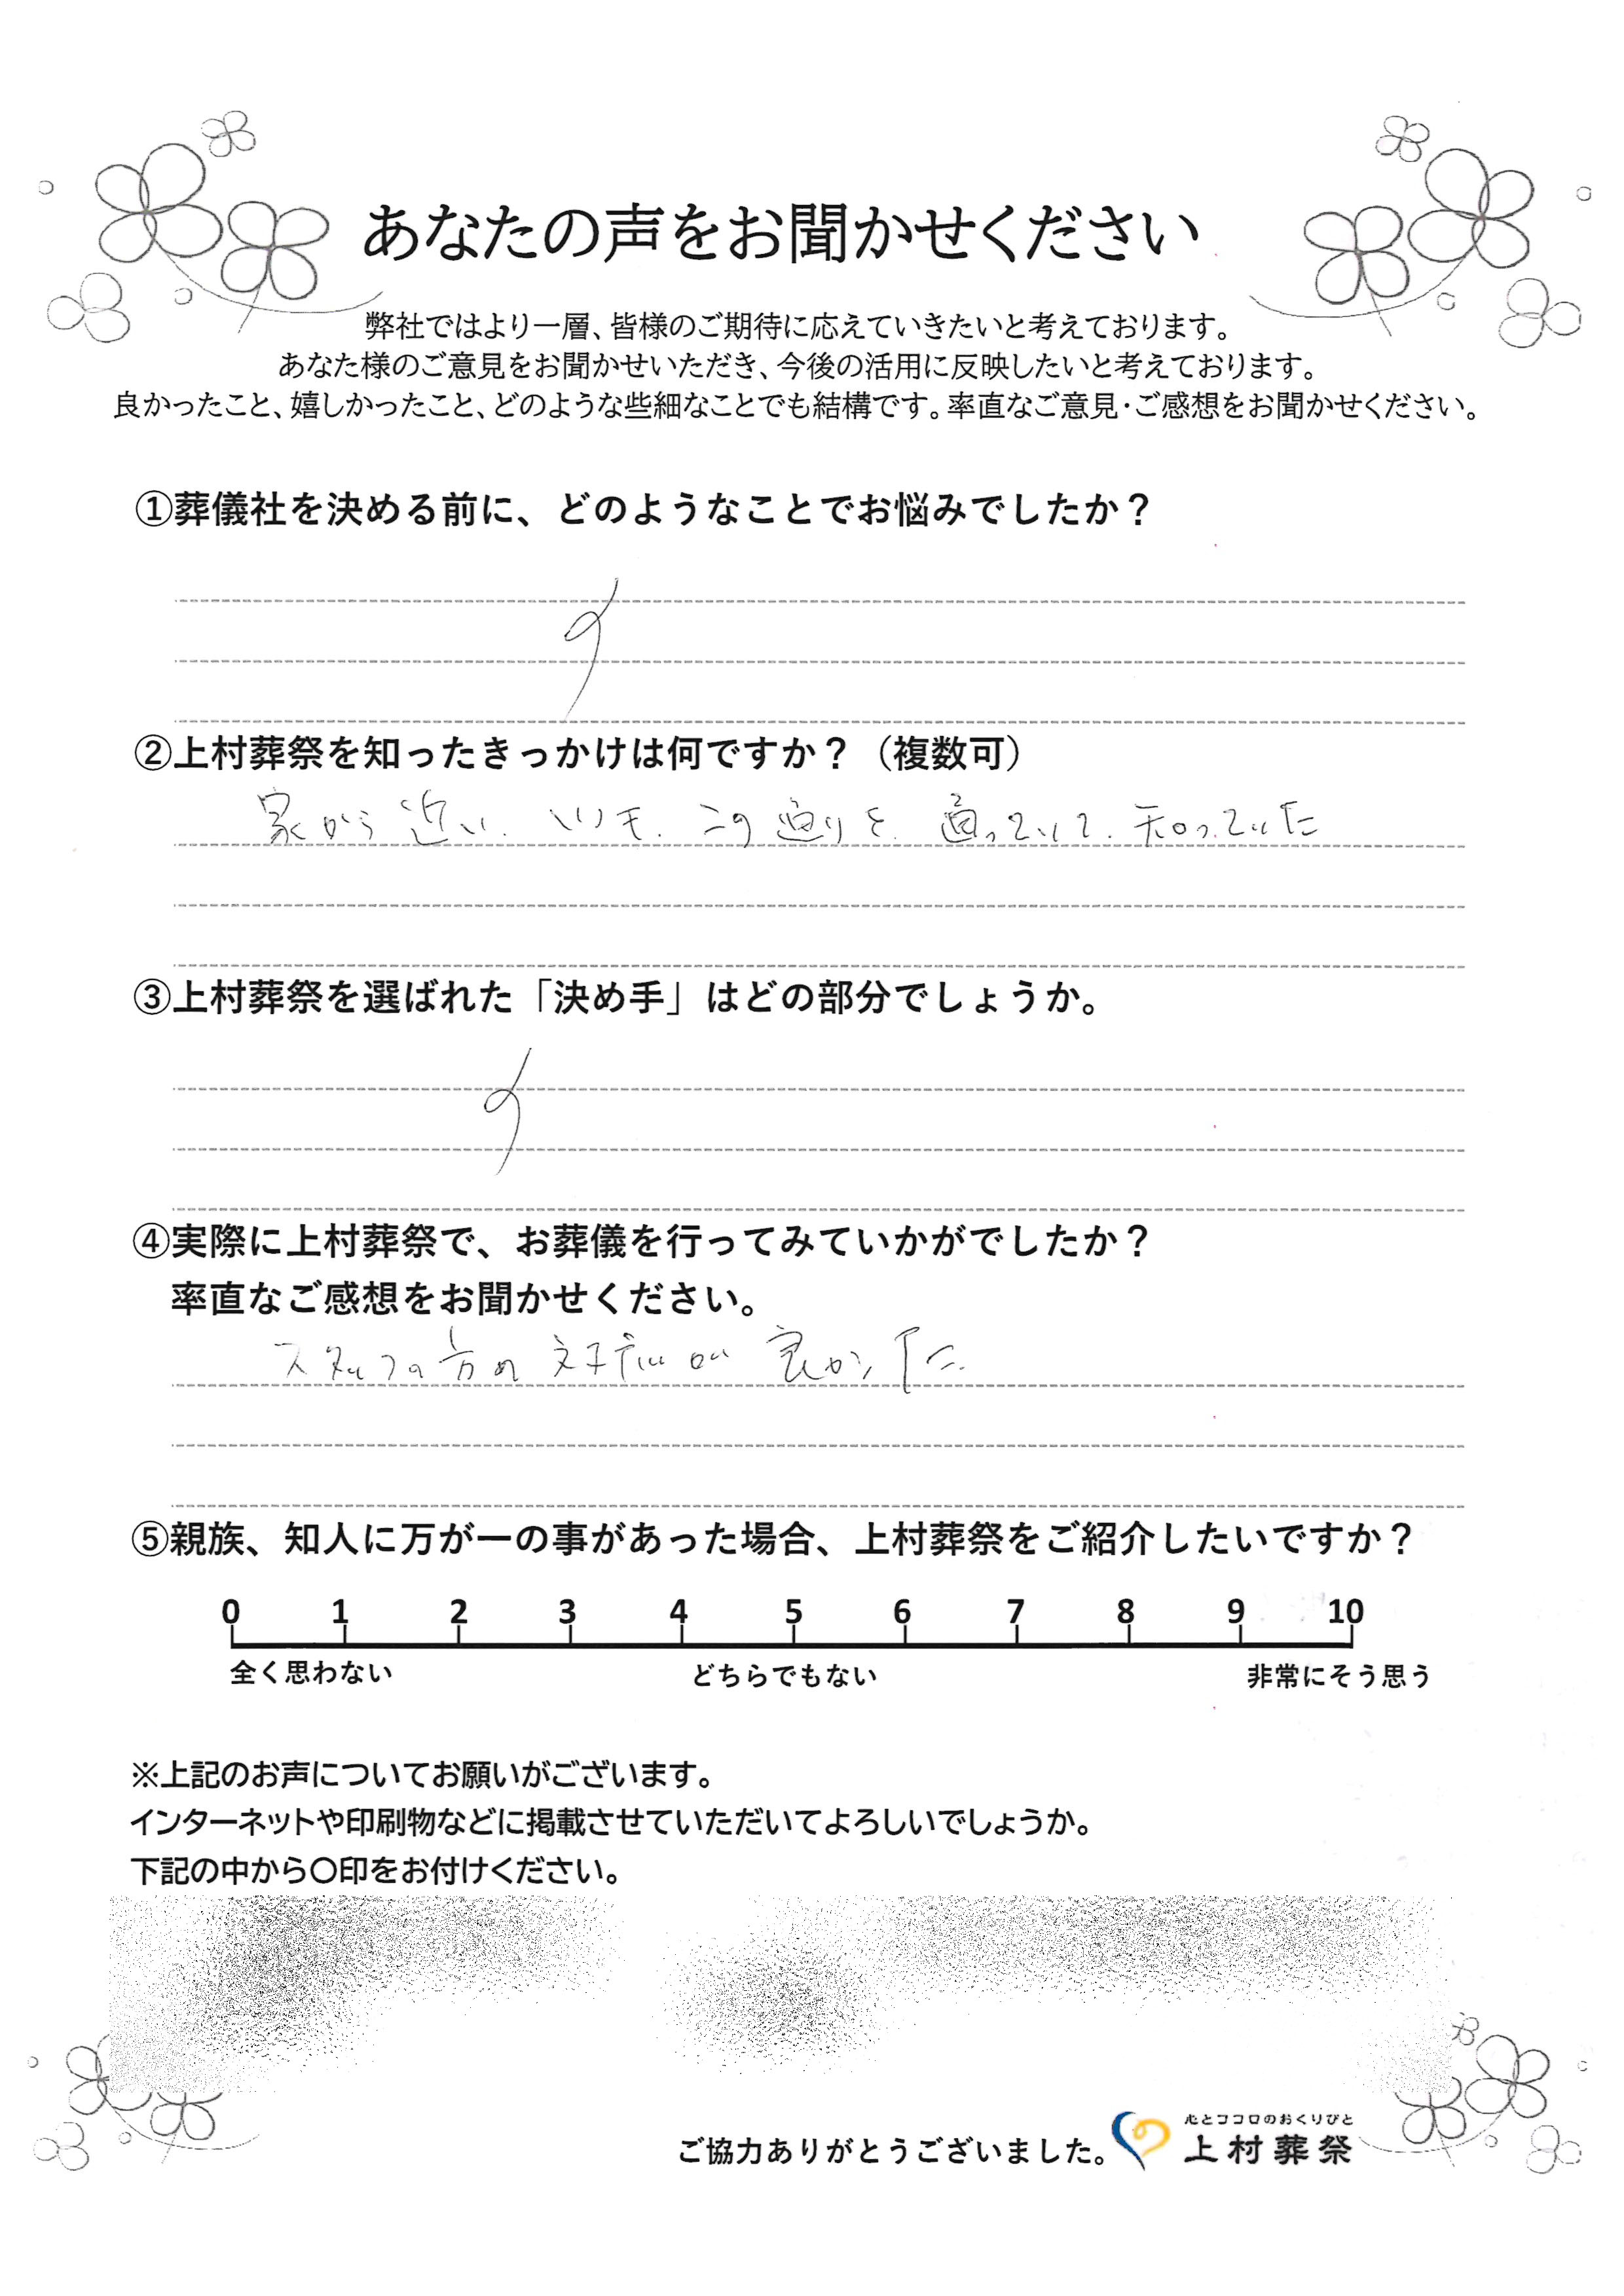 あなたの声をお聞かせください
弊社ではより一層、皆様のご期待に応えていきたいと考えております。
あなた様のご意見をお聞かせいただき、今後の活用に反映したいと考えております。
良かったこと、嬉しかったこと、どのような些細なことでも結構です。率直なご意見・ご感想をお聞かせください。
①葬儀社を決める前に、どのようなことでお悩みでしたか？
②上村葬祭を知ったきっかけは何ですか？（複数可）
家から近い. いつも. この通りを. 通っていて. 知っていた
③上村葬祭を選ばれた「決め手」はどの部分でしょうか。
④実際に上村葬祭で、お葬儀を行ってみていかがでしたか？
率直なご感想をお聞かせください。
スタッフの方の対応が良かった.
⑤親族、知人に万が一の事があった場合、上村葬祭をご紹介したいですか？
0 1 2 3 4 5 6 7 8 9 10
全く思わない どちらでもない 非常にそう思う
※上記のお声についてお願いがございます。
インターネットや印刷物などに掲載させていただいてよろしいでしょうか。
下記の中から〇印をお付けください。
心とココロのおくりびと
ご協力ありがとうございました。 上村葬祭